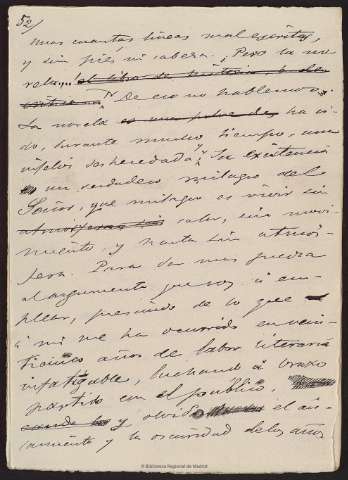 52/
unas cuantas líneas mal escritas,
y sin pies ni cabeza. ¿Pero la no-
vela, el libro de historia, o de
De eso no hablemos.
La novela es una pobre des ha si-
do, durante mucho tiempo, una
infeliz desheredada. Su existencia
es un verdadero milagro del
Señor, que milagro es vivir sin
atmósfera sin calor, sin movi-
miento y hasta sin atmós-
fera. Para dar mas fuerza
al argumento que voy á em-
plear, prescindo de lo que
á mi me ha ocurrido en vein-
ticinco años de labor literaria
infatigable, luchando á brazo
partido con el público,
y olvido el ais-
lamiento y la oscuridad de los años
© Biblioteca Regional de Madrid